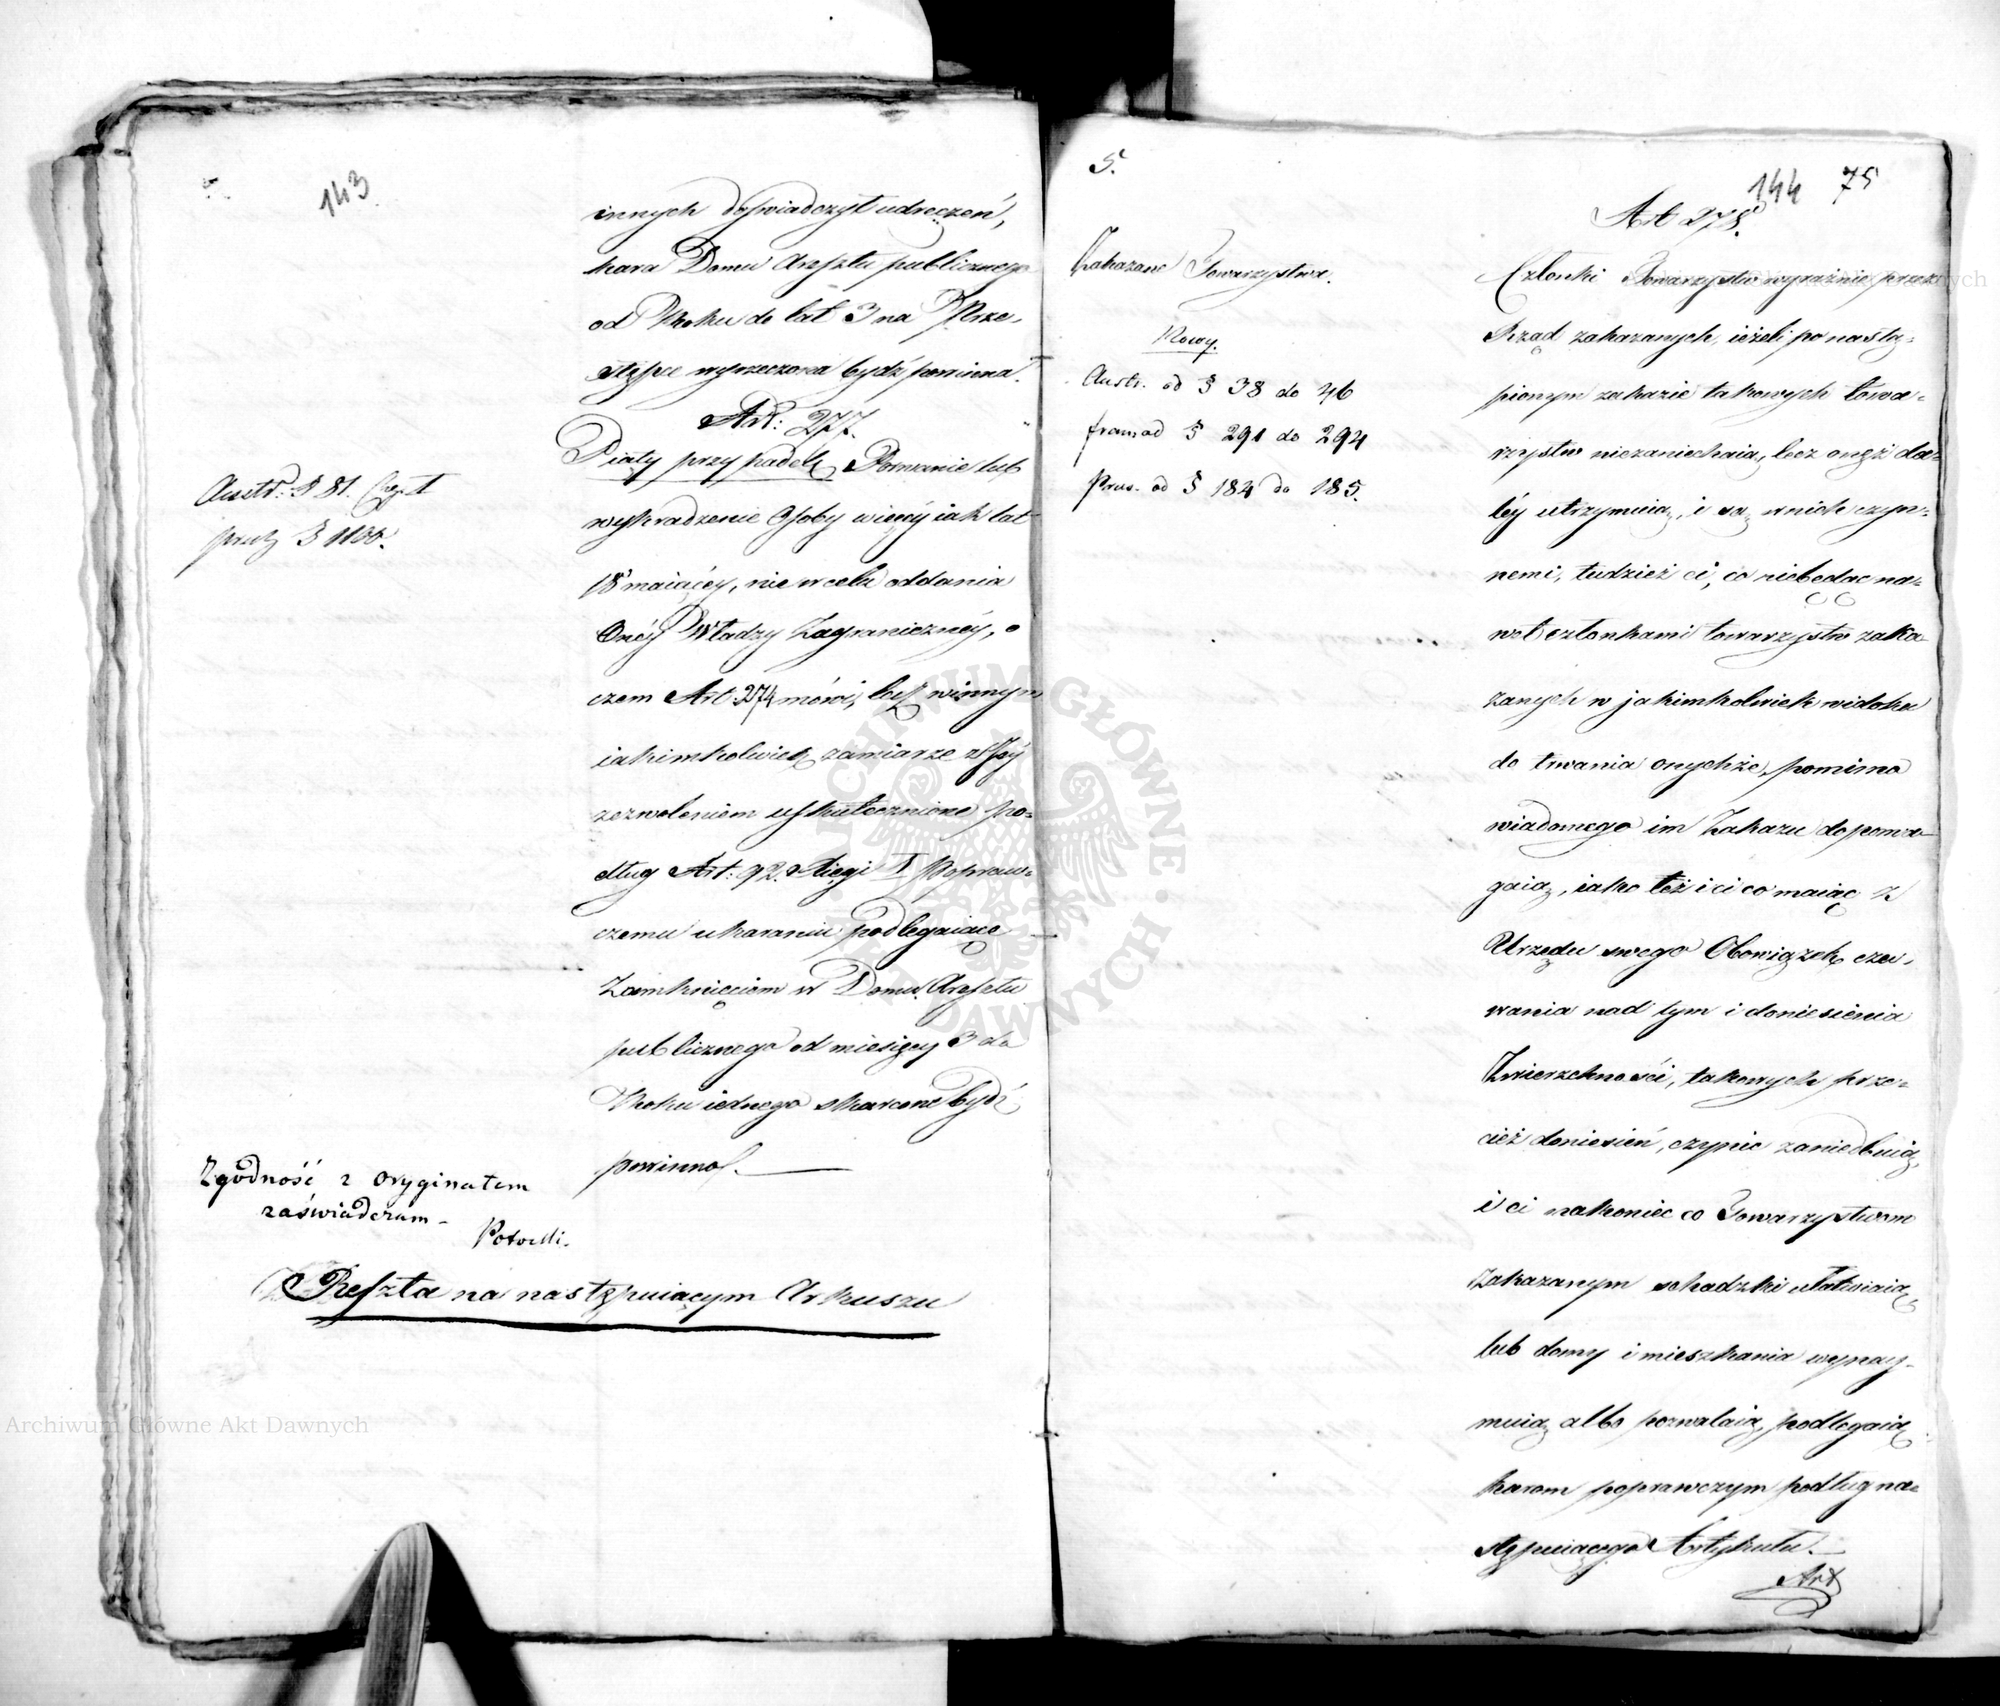 143
innych doświadczył udręczeń,
kara Domu Aresztu publicznego
od Roku do lat 3 na Prze-
stępce wyrzeczona bydź powinna.
Art: 277.
Austr. § 81. Częś. I
prus § 1100.
Piąty przypadek Porwanie lub
wykradzenie Osoby więcéy iak lat
18 maiącey, nie w celu oddania
Onéy Władzy Zagranicznéy, o
czem Art. 274 mówi, lecz w innym
iakimkolwiek zamiarze z Jéy
zezwoleniem uskutecznione po-
dług Art: 92. Xięgi I Popraw-
czemu ukaraniu podlegaiące
Zamknięciem w Domu Aresztu
publicznego od miesięcy 3 do
Roku iednego skarcone bydź
powinno.
Zgodność z oryginałem
zaświadczam -
Potocki.
Reszta na następuiącym Arkuszu
5.
144 75
Art 278.
Zakazane Towarzystwa.
Nowy.
Austr. od § 38 do 46
franc od § 291 do 294
Prus. od § 184 do 185.
Członki Towarzystw wyraźnie przez
Rząd zakazanych, ieżeli po nastą-
pionym zakazie takowych towa-
rzystw niezaniechaią, lecz onęż da-
léy utrzymuią, i są w nich czyn-
nemi, tudzież ci, co niebędąc na-
wet członkami towarzystw zaka
zanych w jakimkolwiek widoku
do trwania onychże, pomimo
wiadomego im Zakazu dopoma-
gaią, iako też i ci co maiąc z
Urzędu swego Obowiązek czu-
wania nad tym i doniesienia
Zwierzchności, takowych prze-
cież doniesień, czynić zaniedbuią,
i ci nakoniec co Towarzystwom
Zakazanym schadzki ułatwiaią,
lub domy i mieszkania wynay-
muią albo pozwalaią, podlegaią
karom poprawczym podług na-
stępuiącego Artykułu.
Art
Archiwum Główne Akt Dawnych
ARCHIWUM GŁÓWNE AKT DAWNYCH